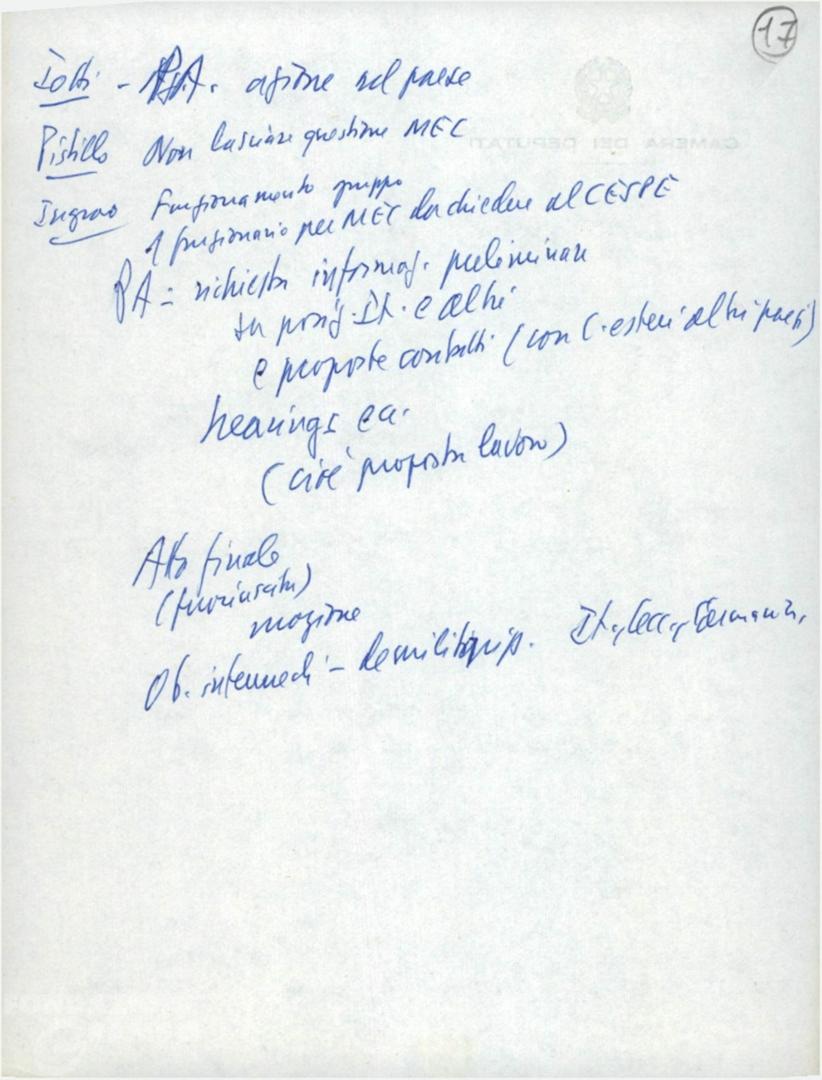 17
CAMERA DEI DEPUTATI
Iotti - P.A. azione nel paese
Pistillo Non lasciare questione MEC
Ingrao Funzionamento gruppo
1 funzionario per MEC da chiedere al CESPE
PA = richiesta informaz. preliminare
su posiz. It. e altri
e proposte contatti (con C. esteri altri paesi)
hearings ecc.
(cioè proposta lavoro)
Atto finale
mozione
Ob. intermedi - It., Cecc., Germania,